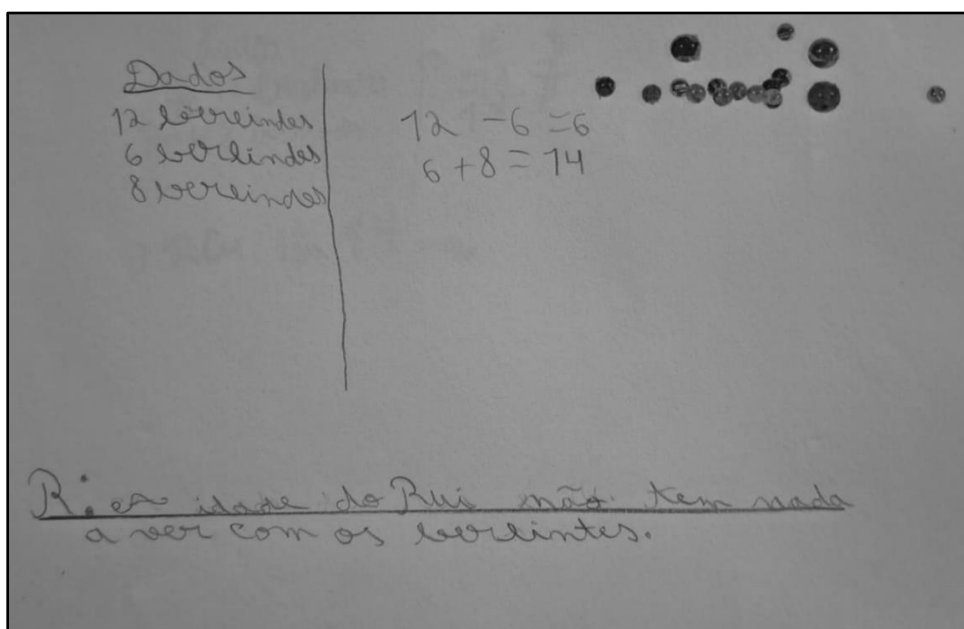 Dados
12 berreindes
6 berlindes
8 berleindes
12 - 6 = 6
6 + 8 = 14
R: a idade do Rui não tem nada
a ver com os berlintes.